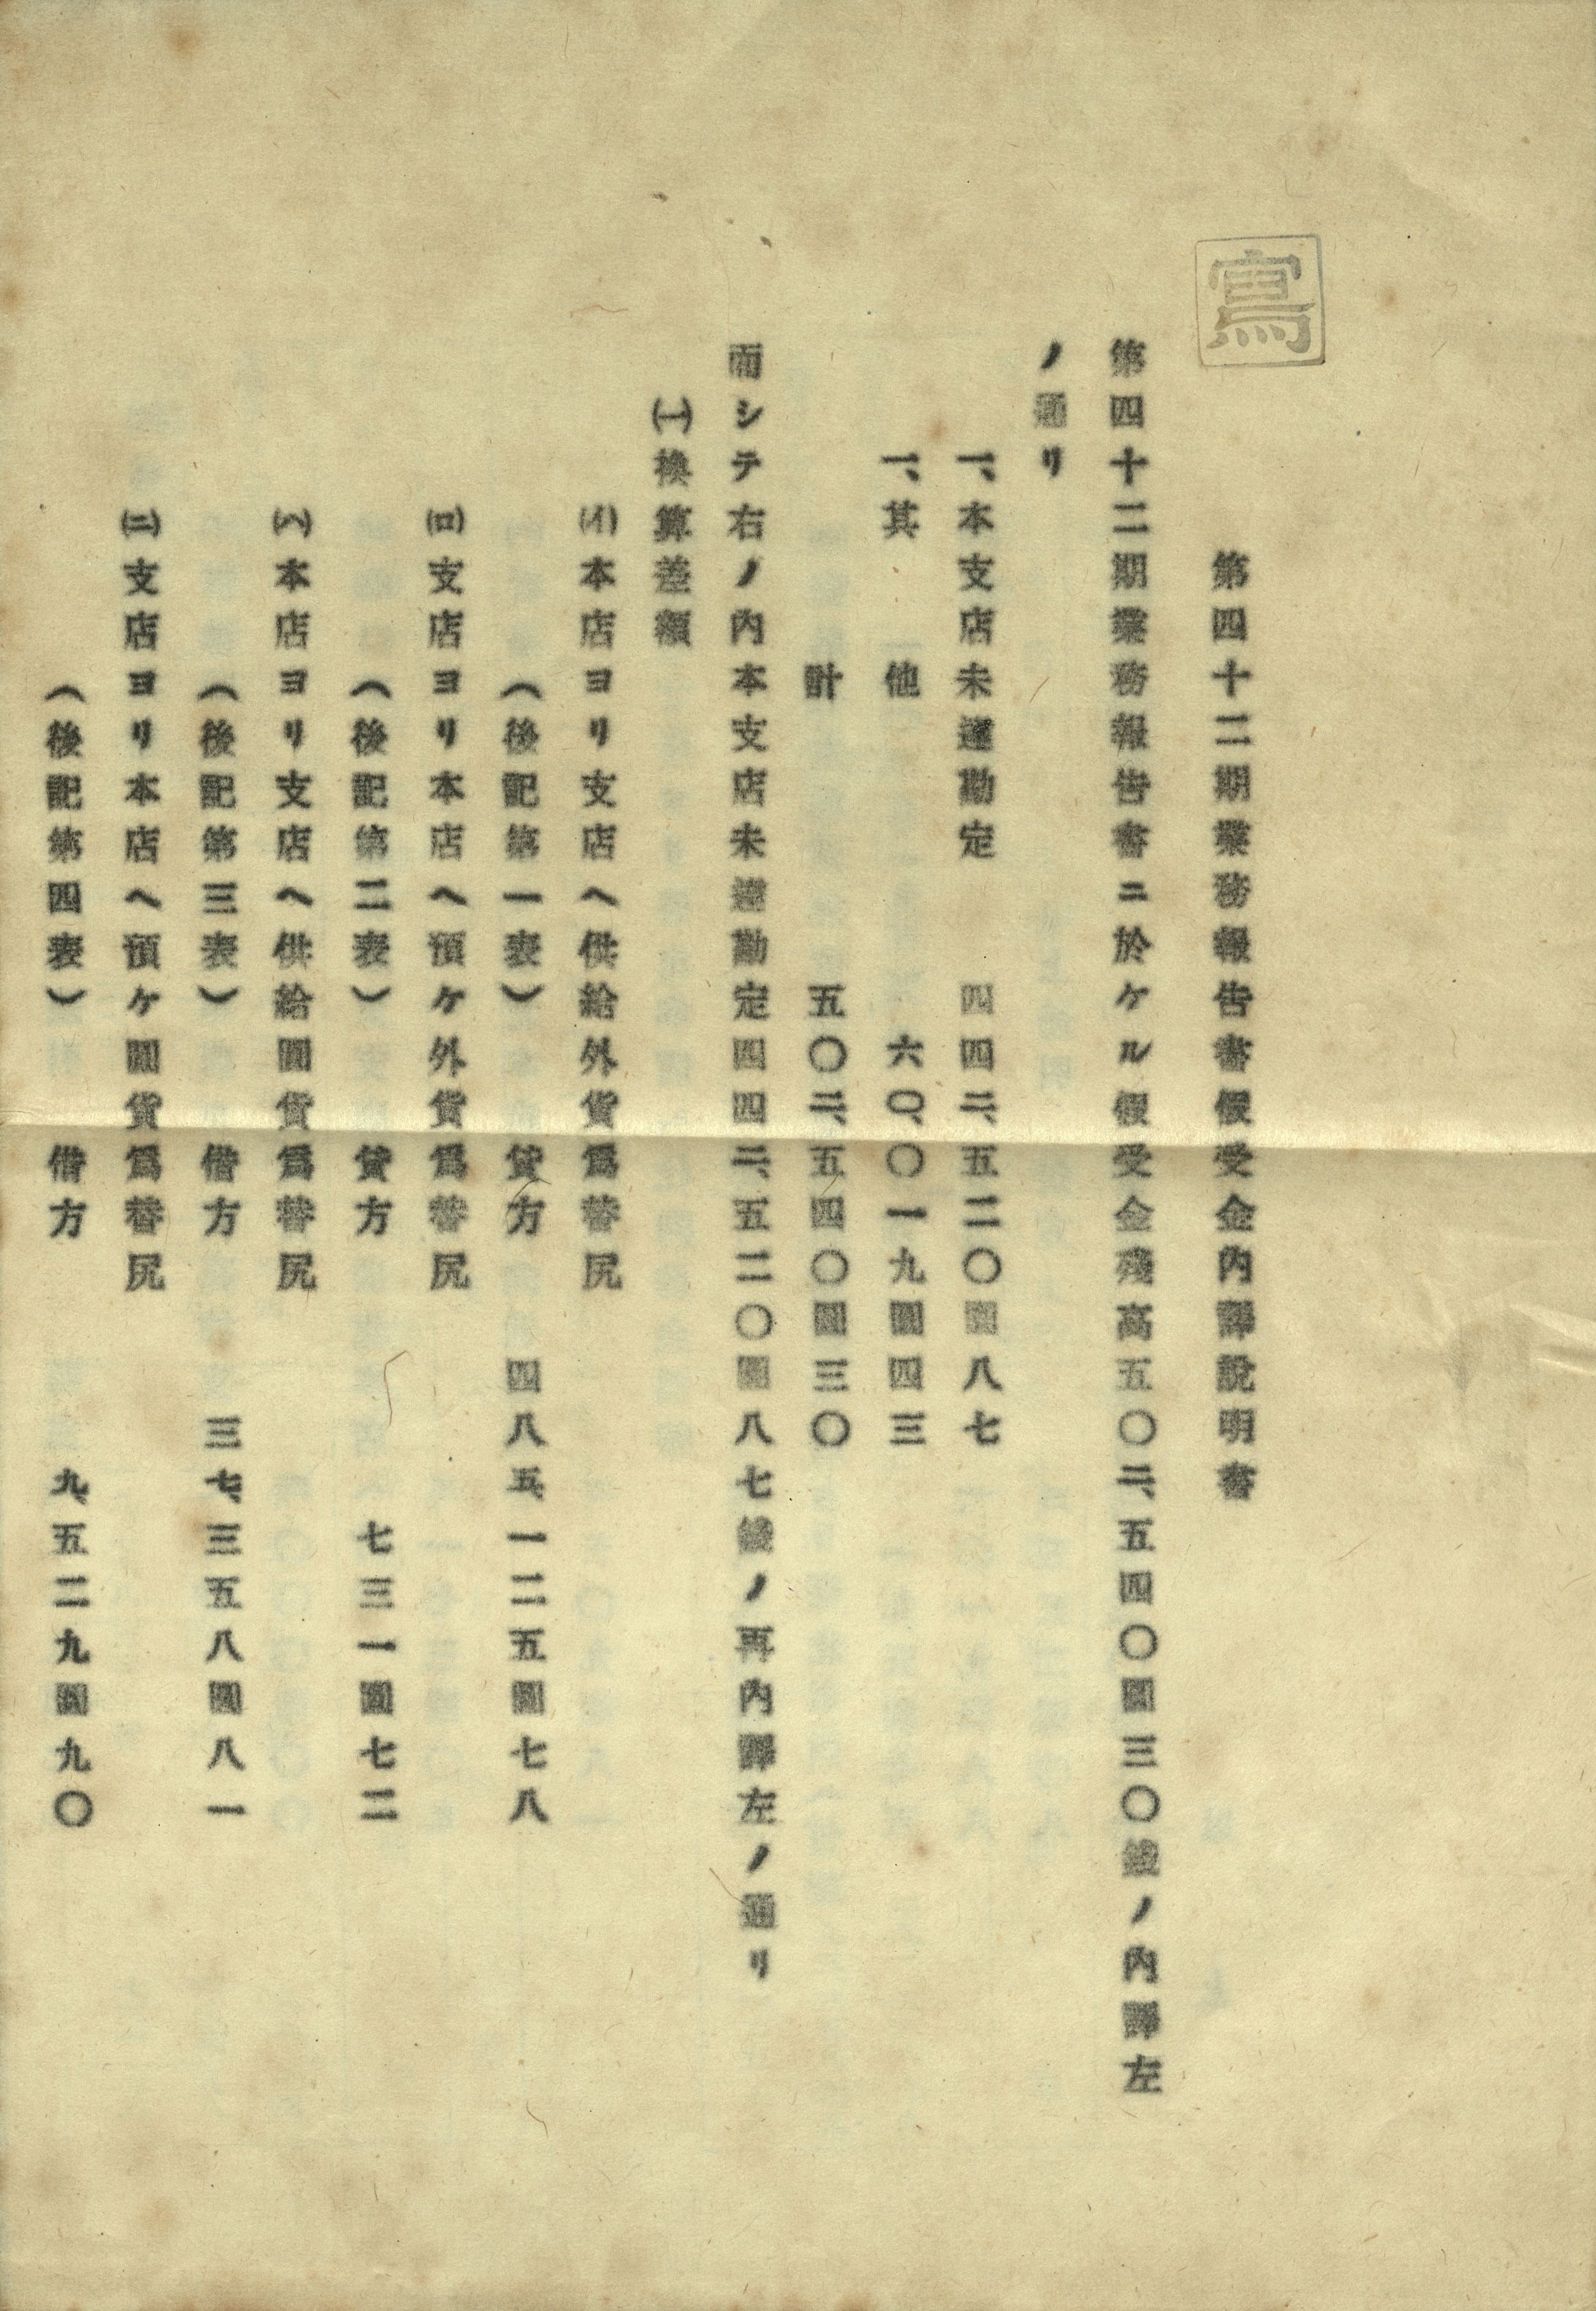 寫
第四十二期業務報告書假受金內譯說明書
第四十二期業務報告書ニ於ケル假受金殘高五〇二、五四〇圓三〇錢ノ內譯左
ノ通リ
一、本支店未達勘定 四四二、五二〇圓八七
一、其 他 六〇、〇一九圓四三
計 五〇二、五四〇圓三〇
而シテ右ノ內本支店未達勘定四四二、五二〇圓八七錢ノ再內譯左ノ通リ
(一)換算差額
(イ)本店ヨリ支店ヘ供給外貨爲替尻
(後記第一表) 貸方 四八五、一二五圓七八
(ロ)支店ヨリ本店ヘ預ケ外貨爲替尻
(後記第二表) 貸方 七三一圓七二
(ハ)本店ヨリ支店ヘ供給圓貨爲替尻
(後記第三表) 借方 三七、三五八圓八一
(ニ)支店ヨリ本店ヘ預ケ圓貨爲替尻
(後記第四表) 借方 九、五二九圓九〇